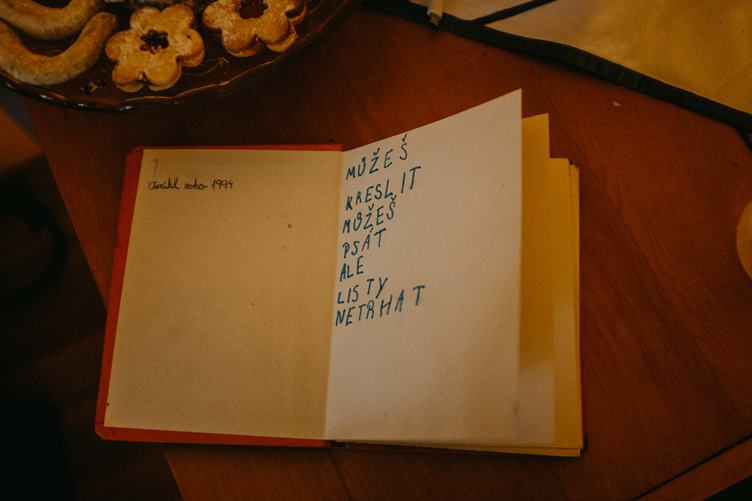 ?
Vznikl roko 1994
MŮŽEŠ
KRESLIT
MŮŽEŠ
PSÁT
ALE
LISTY
NETRHAT